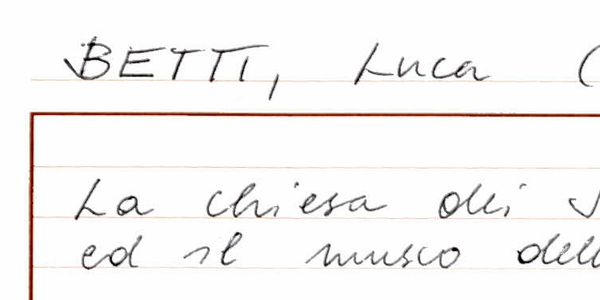 BETTI, Luca (
La chiesa dei
ed il museo dell